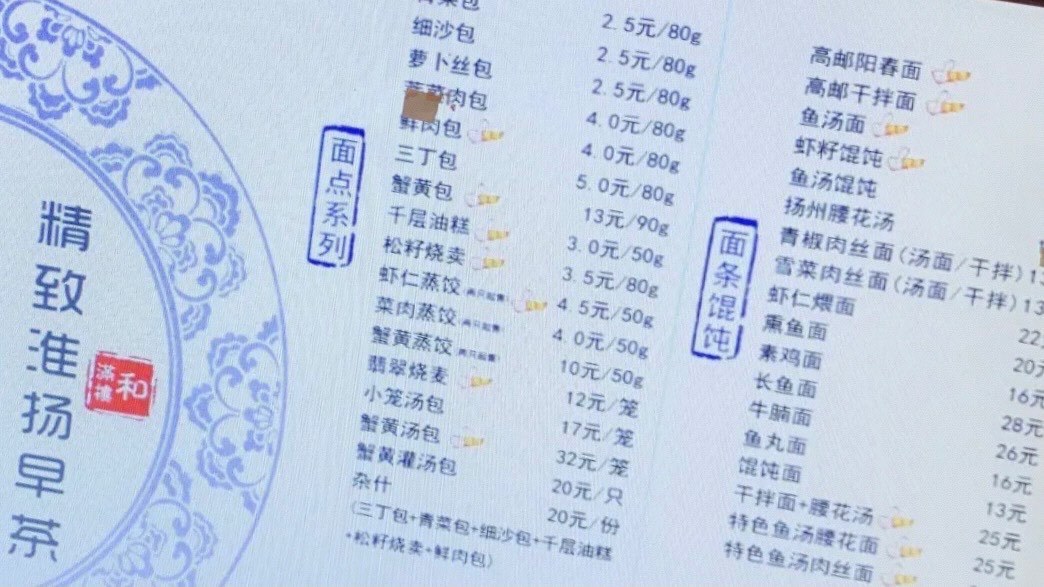 精致淮扬早茶
满禮和
面点系列
菜包 2.5元/80g
细沙包 2.5元/80g
萝卜丝包 2.5元/80g
菜肉包 4.0元/80g
鲜肉包 4.0元/80g
三丁包 5.0元/80g
蟹黄包 13元/90g
千层油糕 3.0元/50g
松籽烧卖 3.5元/80g
虾仁蒸饺(两只起售) 4.5元/50g
菜肉蒸饺(两只起售) 4.0元/50g
蟹黄蒸饺(两只起售) 10元/50g
翡翠烧麦 12元/笼
小笼汤包 17元/笼
蟹黄汤包 32元/笼
蟹黄灌汤包 20元/只
杂什 20元/份
(三丁包+青菜包+细沙包+千层油糕
+松籽烧卖+鲜肉包)
面条馄饨
高邮阳春面
高邮干拌面
鱼汤面
虾籽馄饨
鱼汤馄饨
扬州腰花汤
青椒肉丝面(汤面/干拌) 13
雪菜肉丝面(汤面/干拌) 13
虾仁煨面 22
熏鱼面 20元
素鸡面 16元
长鱼面 28元
牛腩面 26元
鱼丸面 16元
馄饨面 13元
干拌面+腰花汤 25元
特色鱼汤腰花面 25元
特色鱼汤肉丝面